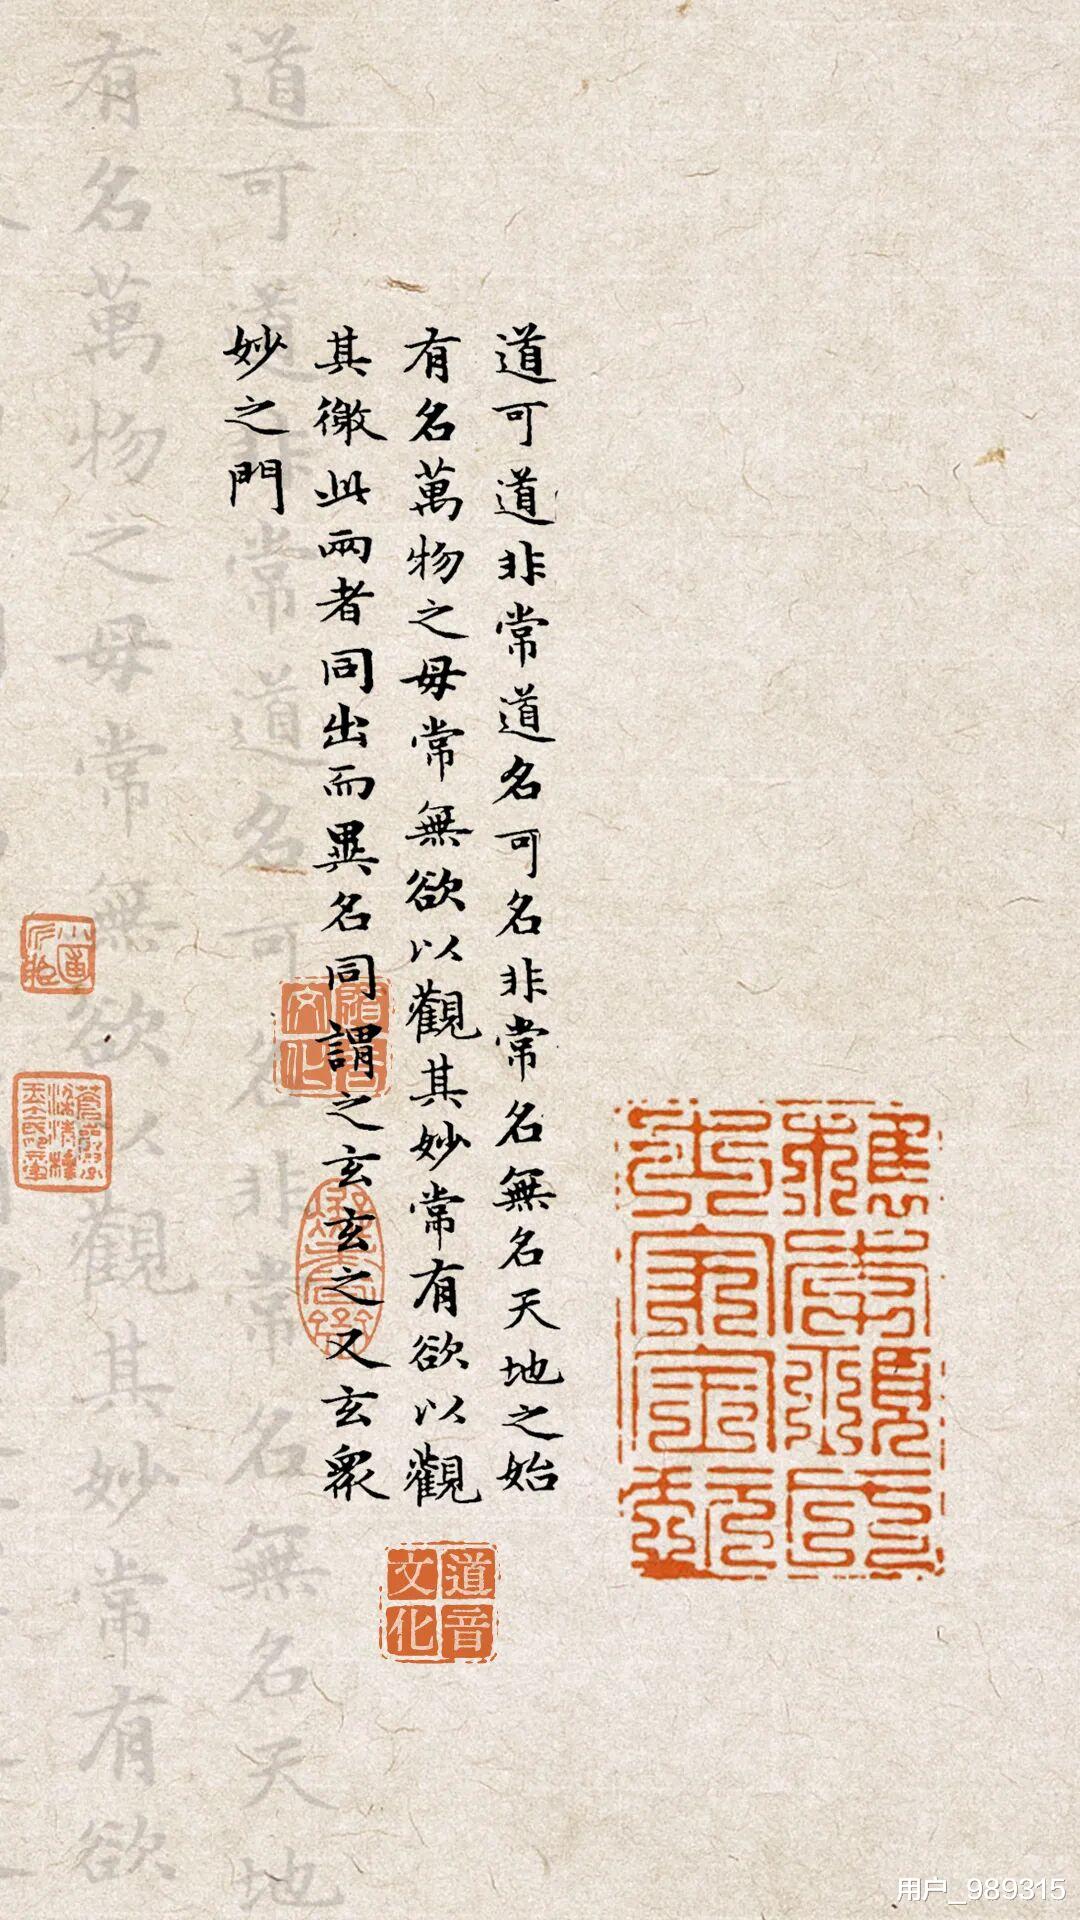 道可道非常道名可名非常名無名天地之始
有名萬物之母常無欲以觀其妙常有欲以觀
其徼此兩者同出而異名同謂之玄玄之又玄眾
妙之門
道音
文化
道可道非常道名可名非常名無名天地
有名萬物之母常無欲以觀其妙常有欲
用户_989315